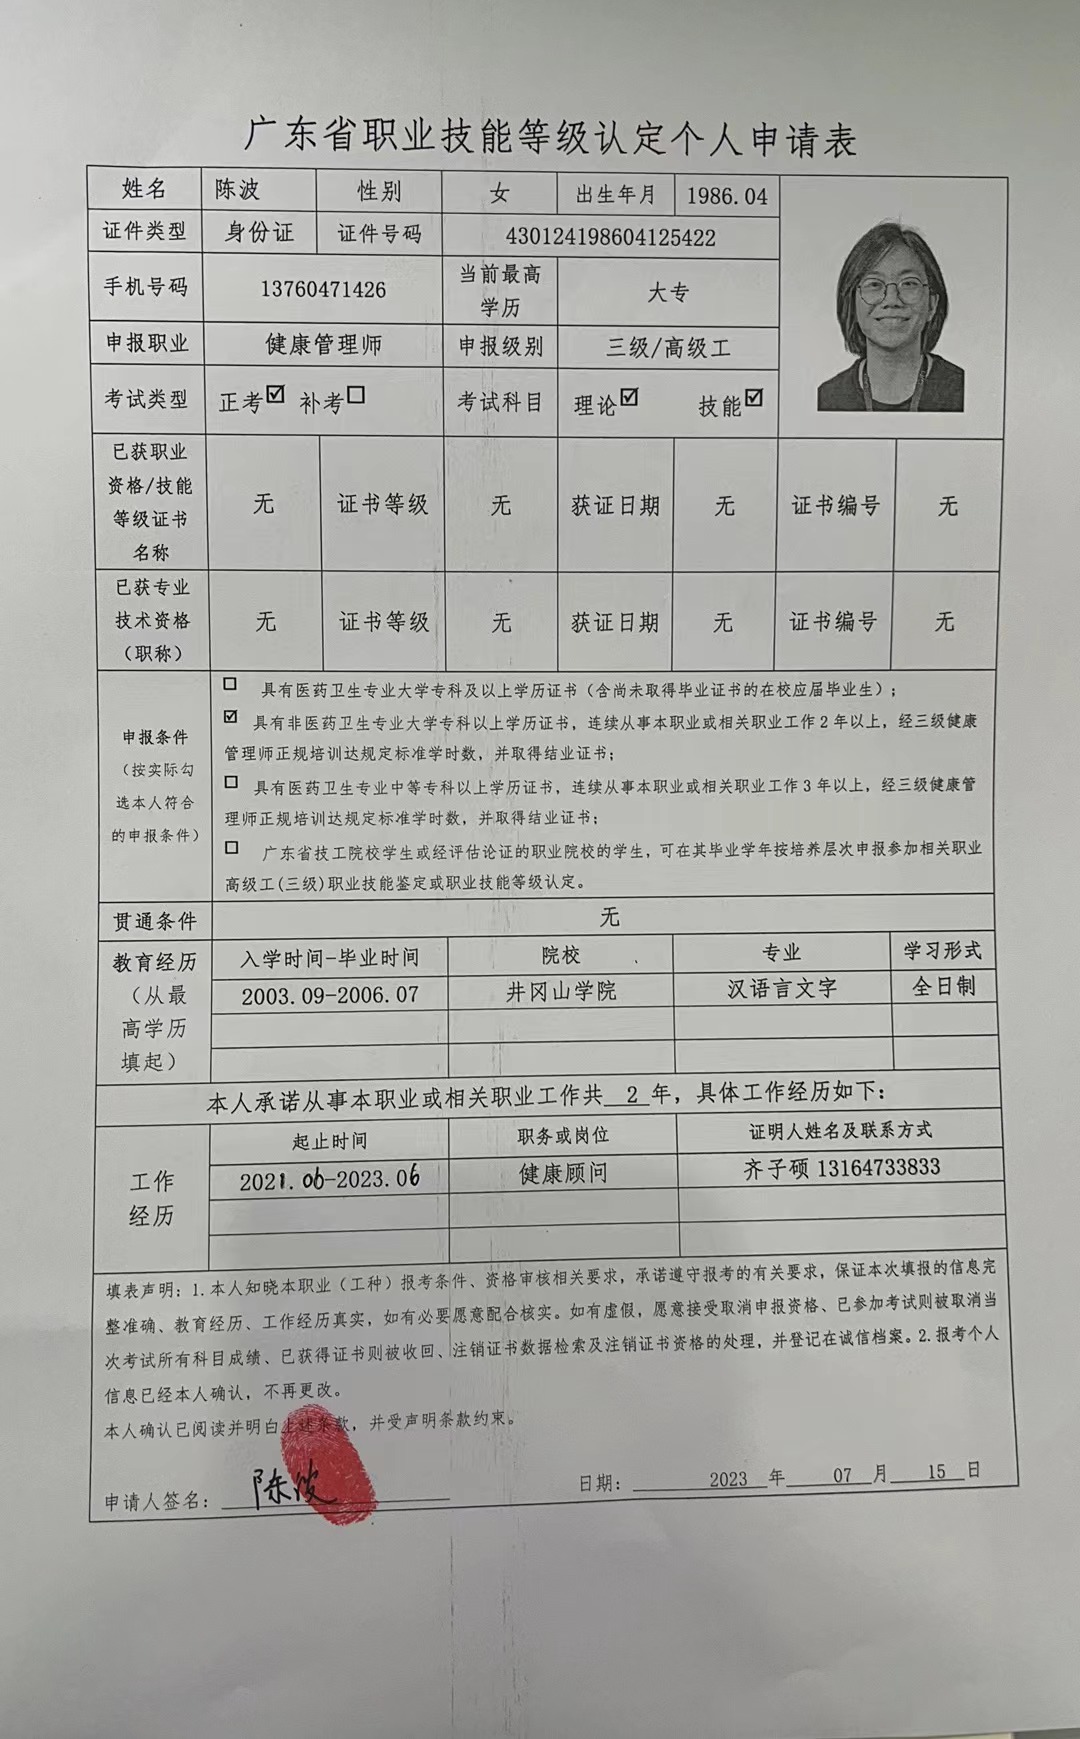 广东省职业技能等级认定个人申请表
姓名 陈波 性别 女 出生年月 1986.04
证件类型 身份证 证件号码 430124198604125422
手机号码 13760471426 当前最高
学历 大专
申报职业 健康管理师 申报级别 三级/高级工
考试类型 正考☑ 补考☐ 考试科目 理论☑ 技能☑
已获职业
资格/技能
等级证书
名称 无 证书等级 无 获证日期 无 证书编号 无
已获专业
技术资格
（职称） 无 证书等级 无 获证日期 无 证书编号 无
申报条件
（按实际勾
选本人符合
的申报条件）
☐ 具有医药卫生专业大学专科及以上学历证书（含尚未取得毕业证书的在校应届毕业生）；
☑ 具有非医药卫生专业大学专科以上学历证书，连续从事本职业或相关职业工作2年以上，经三级健康
管理师正规培训达规定标准学时数，并取得结业证书；
☐ 具有医药卫生专业中等专科以上学历证书，连续从事本职业或相关职业工作3年以上，经三级健康管
理师正规培训达规定标准学时数，并取得结业证书；
☐ 广东省技工院校学生或经评估论证的职业院校的学生，可在其毕业学年按培养层次申报参加相关职业
高级工(三级)职业技能鉴定或职业技能等级认定。
贯通条件 无
教育经历
（从最
高学历
填起）
入学时间-毕业时间 院校 专业 学习形式
2003.09-2006.07 井冈山学院 汉语言文字 全日制
本人承诺从事本职业或相关职业工作共 2 年，具体工作经历如下：
工作
经历
起止时间 职务或岗位 证明人姓名及联系方式
2021.06-2023.06 健康顾问 齐子硕 13164733833
填表声明：1.本人知晓本职业（工种）报考条件、资格审核相关要求，承诺遵守报考的有关要求，保证本次填报的信息完
整准确、教育经历、工作经历真实，如有必要愿意配合核实。如有虚假，愿意接受取消申报资格、已参加考试则被取消当
次考试所有科目成绩、已获得证书则被收回、注销证书数据检索及注销证书资格的处理，并登记在诚信档案。2.报考个人
信息已经本人确认，不再更改。
本人确认已阅读并明白上述条款，并受声明条款约束。
申请人签名：陈波 日期： 2023 年 07 月 15 日